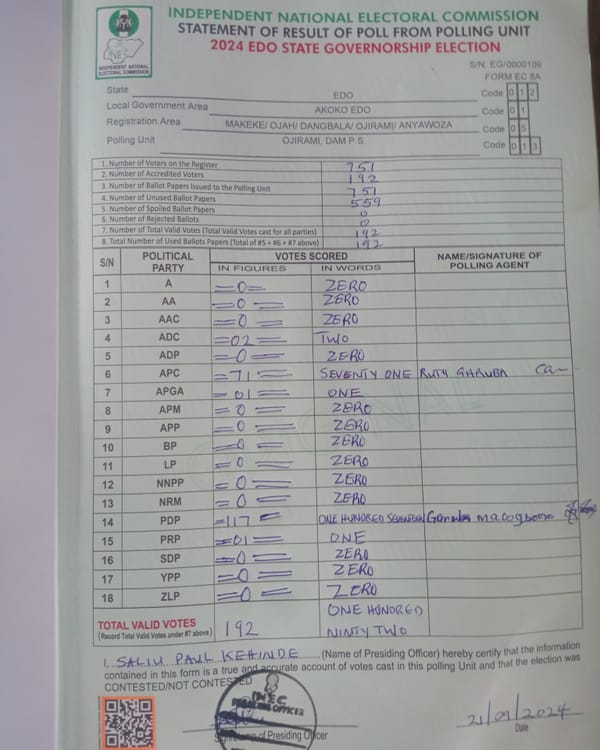 INDEPENDENT NATIONAL ELECTORAL COMMISSION
STATEMENT OF RESULT OF POLL FROM POLLING UNIT
2024 EDO STATE GOVERNORSHIP ELECTION
INEC
INDEPENDENT NATIONAL
ELECTORAL COMMISSION
S/N. EG/0000109
FORM EC 8A
State EDO Code 0 1 2
Local Government Area AKOKO EDO Code 0 1
Registration Area MAKEKE/ OJAH/ DANGBALA/ OJIRAMI/ ANYAWOZA Code 0 5
Polling Unit OJIRAMI, DAM P.S. Code 0 1 3
1. Number of Voters on the Register 751
2. Number of Accredited Voters 192
3. Number of Ballot Papers Issued to the Polling Unit 751
4. Number of Unused Ballot Papers 559
5. Number of Spoiled Ballot Papers 0
6. Number of Rejected Ballots 0
7. Number of Total Valid Votes (Total Valid Votes cast for all parties) 192
8. Total Number of Used Ballots Papers (Total of #5 + #6 + #7 above) 192
S/N POLITICAL PARTY VOTES SCORED NAME/SIGNATURE OF POLLING AGENT
IN FIGURES IN WORDS
1 A =0= ZERO
2 AA =0= ZERO
3 AAC =0= ZERO
4 ADC =02= TWO
5 ADP =0= ZERO
6 APC =71= SEVENTY ONE RUTH GHRUBA
7 APGA =01= ONE
8 APM =0= ZERO
9 APP =0= ZERO
10 BP =0= ZERO
11 LP =0= ZERO
12 NNPP =0= ZERO
13 NRM =0= ZERO
14 PDP =117= ONE HUNDRED SEVENTEEN
15 PRP =01= ONE
16 SDP =0= ZERO
17 YPP =0= ZERO
18 ZLP =0= ZERO
TOTAL VALID VOTES 192 ONE HUNDRED
(Record Total Valid Votes under #7 above) NINTY TWO
I, SALIU PAUL KEHINDE (Name of Presiding Officer) hereby certify that the information
contained in this form is a true and accurate account of votes cast in this polling Unit and that the election was
CONTESTED/NOT CONTESTED
INEC
PRESIDING OFFICER
Signature of Presiding Officer
21/09/2024
Date